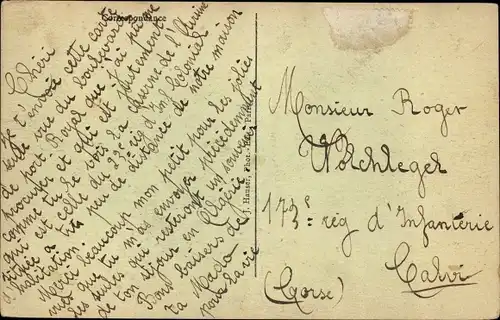 Correspondance
Chéri
je t'envoie cette carte
seule vue du boulevard
de port Royal que j'ai pu me
procurer et qui est justement
comme tu le vois la caserne de l'
qui est celle du 23e rég d'Inf Coloniale
située à très peu de distance de notre maison
habitation.
Merci beaucoup mon petit pour les jolies
que tu m'as envoyé précédemment
qui resteront un souvenir
de ton séjour en Algérie
Bons baisers de
ta Mado
pour la vie
J. Hauser, Phot.
Monsieur Roger
173e rég d'Infanterie
Calvi
(Corse)